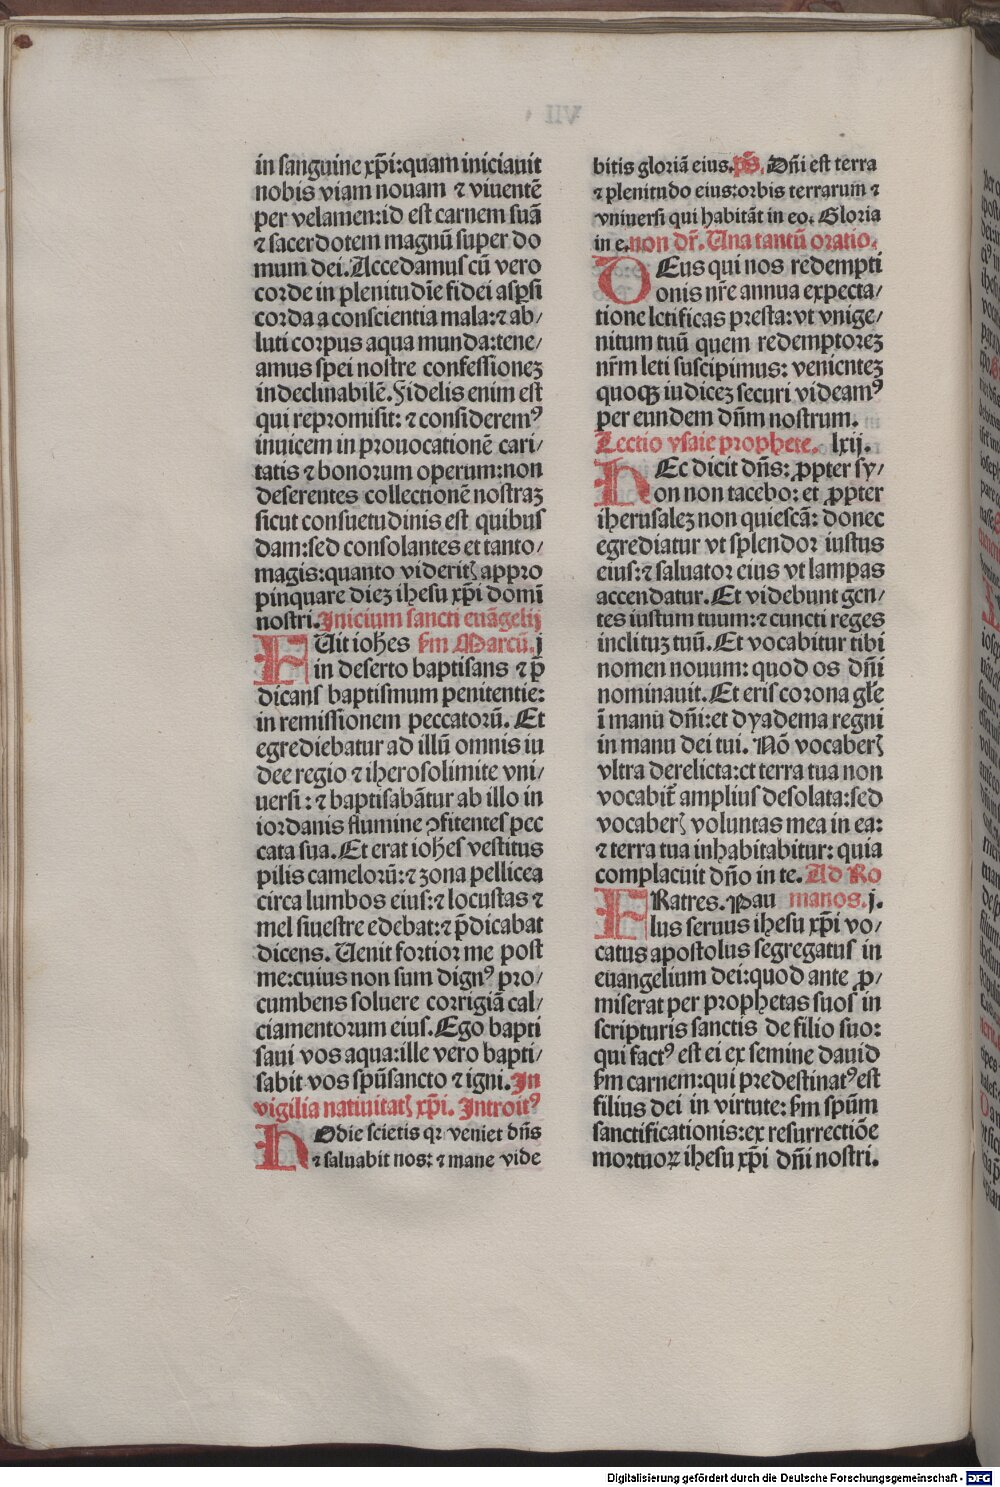 in sanguine xp̄i:quam iniciauit
nobis viam nouam ⁊ viuentē
per velamen:id est carnem suā
⁊ sacerdotem magnū super do
mum dei. Accedamus cū vero
corde in plenitudīe fidei asp̱si
corda a conscientia mala:⁊ ab/
luti corpus aqua munda:tene/
amus spei nostre confessionez
indeclinabilē. Fidelis enim est
qui repromisit: ⁊ consideremꝰ
inuicem in prouocationē cari/
tatis ⁊ bonorum operum:non
deserentes collectionē nostraz
sicut consuetudinis est quibus
dam:sed consolantes et tanto/
magis:quanto videritꝭ appro
pinquare diez ihesu xp̄i domī
nostri. Inicium sancti euāgelij
FUit ioħes ẜm Marcū. j
in deserto baptisans ⁊ p̄
dicans baptismum penitentie:
in remissionem peccatorū. Et
egrediebatur ad illū omnis iu
dee regio ⁊ iherosolimite vni/
uersi : ⁊ baptisabātur ab illo in
iordanis flumine ꝯfitentes pec
cata sua. Et erat ioħes vestitus
pilis camelorū:⁊ zona pellicea
circa lumbos eius:⁊ locustas ⁊
mel siuestre edebat:⁊ p̄dicabat
dicens. Uenit fortior me post
me:cuius non sum dignꝰ pro/
cumbens soluere corrigiā cal/
ciamentorum eius. Ego bapti
saui vos aqua:ille vero bapti/
sabit vos spūsancto ⁊ igni. In
vigilia natiuitatꝭ xp̄i. Introitꝰ
HOdie scietis qꝛ veniet dn̄s
⁊ saluabit nos: ⁊ mane vide
bitis gloriā eius. ps̄. Dn̄i est terra
⁊ plenitudo eius:orbis terrarum ⁊
vniuersi qui habitāt in eo. Gloria
in e. non dr̄. Una tantū oratio.
DEus qui nos redempti
onis nr̄e annua expecta/
tione letificas presta:vt vnige/
nitum tuū quem redemptorez
nr̄m leti suscipimus: venientez
quoqꝫ iudicez securi videamꝰ
per eundem dn̄m nostrum.
Lectio ysaie prophete. lxij.
HEc dicit dn̄s: ꝓpter sy/
on non tacebo: et ꝓpter
iherusalez non quiescā: donec
egrediatur vt splendor iustus
eius:⁊ saluator eius vt lampas
accendatur. Et videbunt gen/
tes iustum tuum:⁊ cuncti reges
inclituz tuū. Et vocabitur tibi
nomen nouum: quod os dn̄i
nominauit. Et eris corona gl̄e
ī manu dn̄i:et dyadema regni
in manu dei tui. Nō vocaberꝭ
vltra derelicta:et terra tua non
vocabit̄ amplius desolata:sed
vocaberꝭ voluntas mea in ea:
⁊ terra tua inhabitabitur: quia
complacuit dn̄o in te. Ad Ro
FRatres. Pau manos. j.
lus seruus ihesu xp̄i vo/
catus apostolus segregatus in
euangelium dei:quod ante ꝓ/
miserat per prophetas suos in
scripturis sanctis de filio suo:
qui factꝰ est ei ex semine dauid
ẜm carnem:qui predestinatꝰ est
filius dei in virtute: ẜm spūm
sanctificationis:ex resurrectiōe
mortuoꝝ ihesu xp̄i dn̄i nostri.
Digitalisierung gefördert durch die Deutsche Forschungsgemeinschaft - DFG